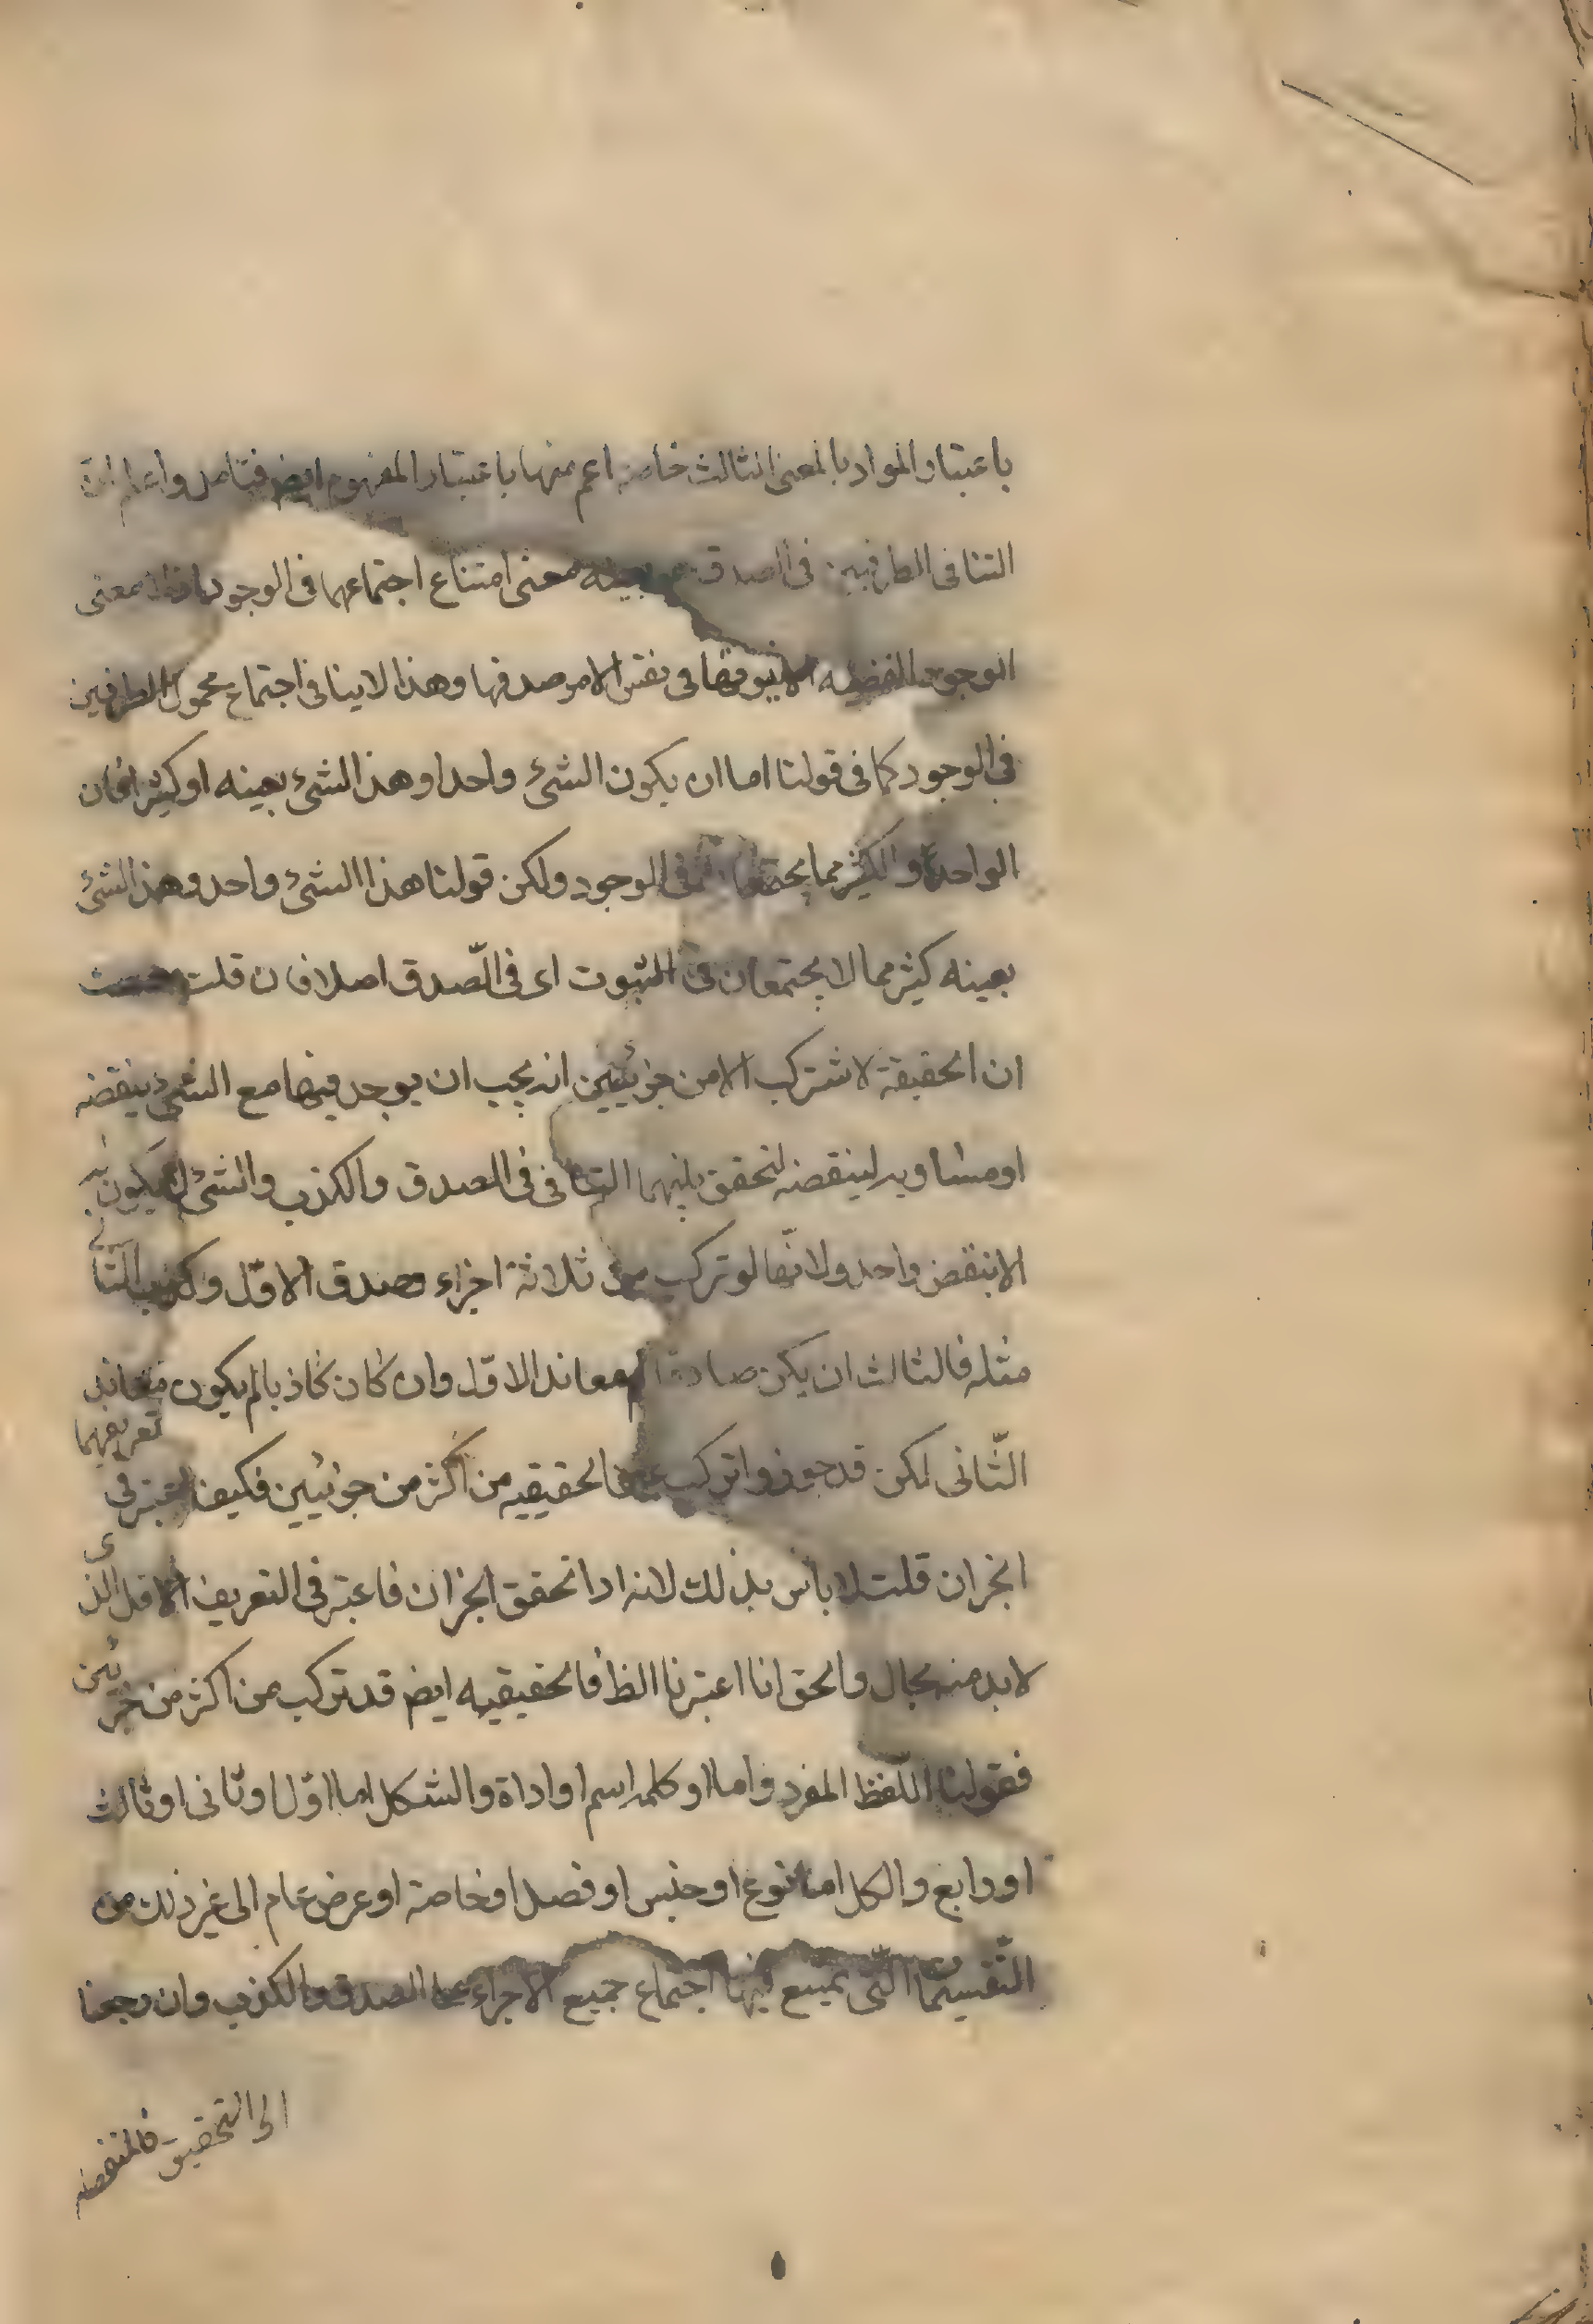 باعتبار المواد بالمعنى الثالث خاصة اعم منها باعتبار المفهوم ايض فتامل واعلم ان
التنافى الطرفين فى الصدق بمعنى امتناع اجتماعهما فى الوجود معنى
الوجود للقضيه فى نفس الامر صدقها وهذا لا ينافى اجتماع محمول الطرفين
فى الوجود كما فى قولنا اما ان يكون الشئ واحدا وهذا الشئ بعينه او كثيرا فان
الواحد والكثير مما فى الوجود ولكن قولنا هذا الشئ واحد وهذا الشئ
بعينه كثير مما لا يجتمعان فى الثبوت اى فى الصّدق اصلا فان قلت
ان الحقيقة لا تتركب الا من جزئيين انه يجب ان يوجد فيها مع الشئ نيقضه
او مساويه لينقضه لتحقق بينهما التنافى فى الصدق والكذب والشئ لا يكون له
الا نيقض واحد ولانّها لو تركب من ثلاثة اجزاء وصدق الاوّل وكذب الثانى
مثله فالثالث ان يكن صادقا لم معاند الاوّل وان كان كاذبا لم يكون معاند
الثّانى لكن قد جوزوا تركب الحقيقيه من اكثر من جزئيين فكيف اعتبر فى تعريفهما
الجزان قلت لا باس بذلك لانه اذا تحقق الجزان فاعتبر فى التعريف الاقل الذى
لا بد منه بحال والحق انا اعتبرنا الظ فالحقيقيه ايض قد تركب من اكثر من جزئين
فقولنا اللّفظ المفرد واما او كلمه اسم او اداة والشكل اما اوّل او ثانى او ثالث
او رابع والكل اما نوع او جنس او فصل او خاصة او عرض عام الى غير ذلك من
التّقسيمات الّتى يمتنع فيها اجتماع جميع الاجزاء على الصدق والكذب وان رجعنا
الى التحقيق فالمنفصله